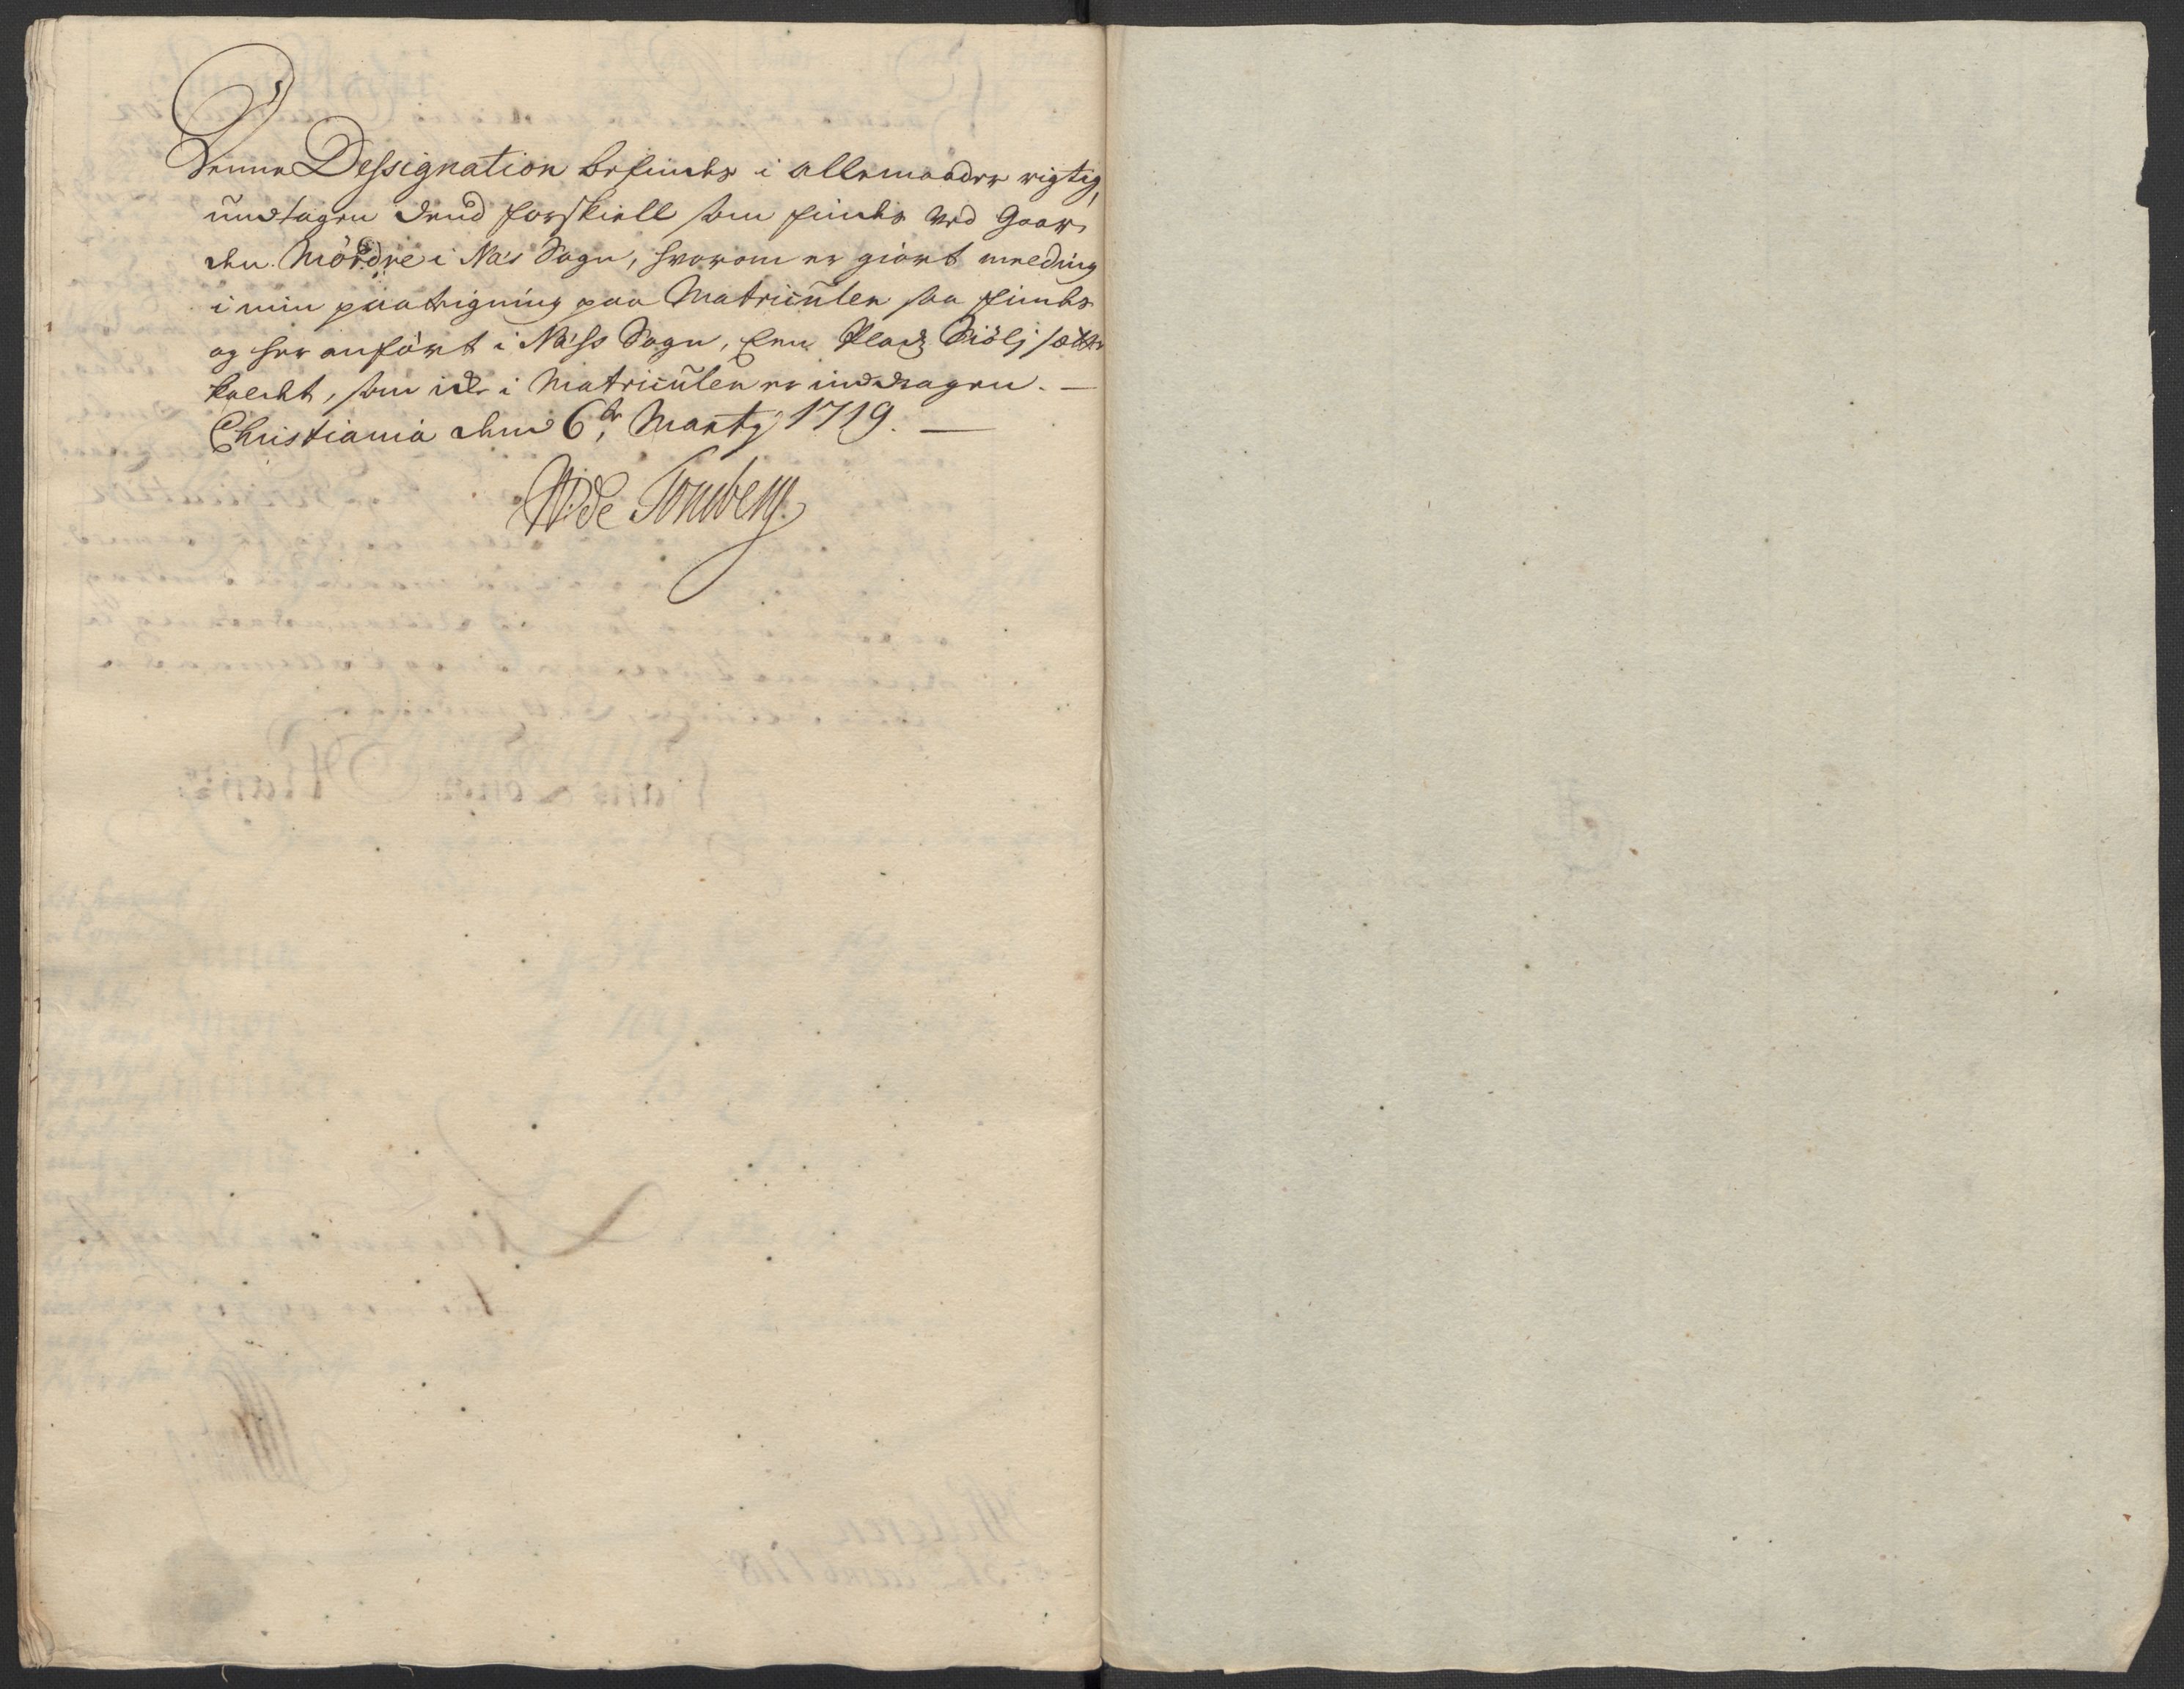 Denne Dessignation befindes i allemaader rigtig,
undtagen dend forskiell som findes ved Gaar-
den Mördre i Næs Sogn, hvorom er giort melding
i min paategning paa Matriculen saa findes
og her anfört i Næss Sogn, Een Pladz Siölj sætter
kaldt, som iche i Matriculen er inddragen. —
Christiania dend 6te Martij 1719. —
de Tonsberg.